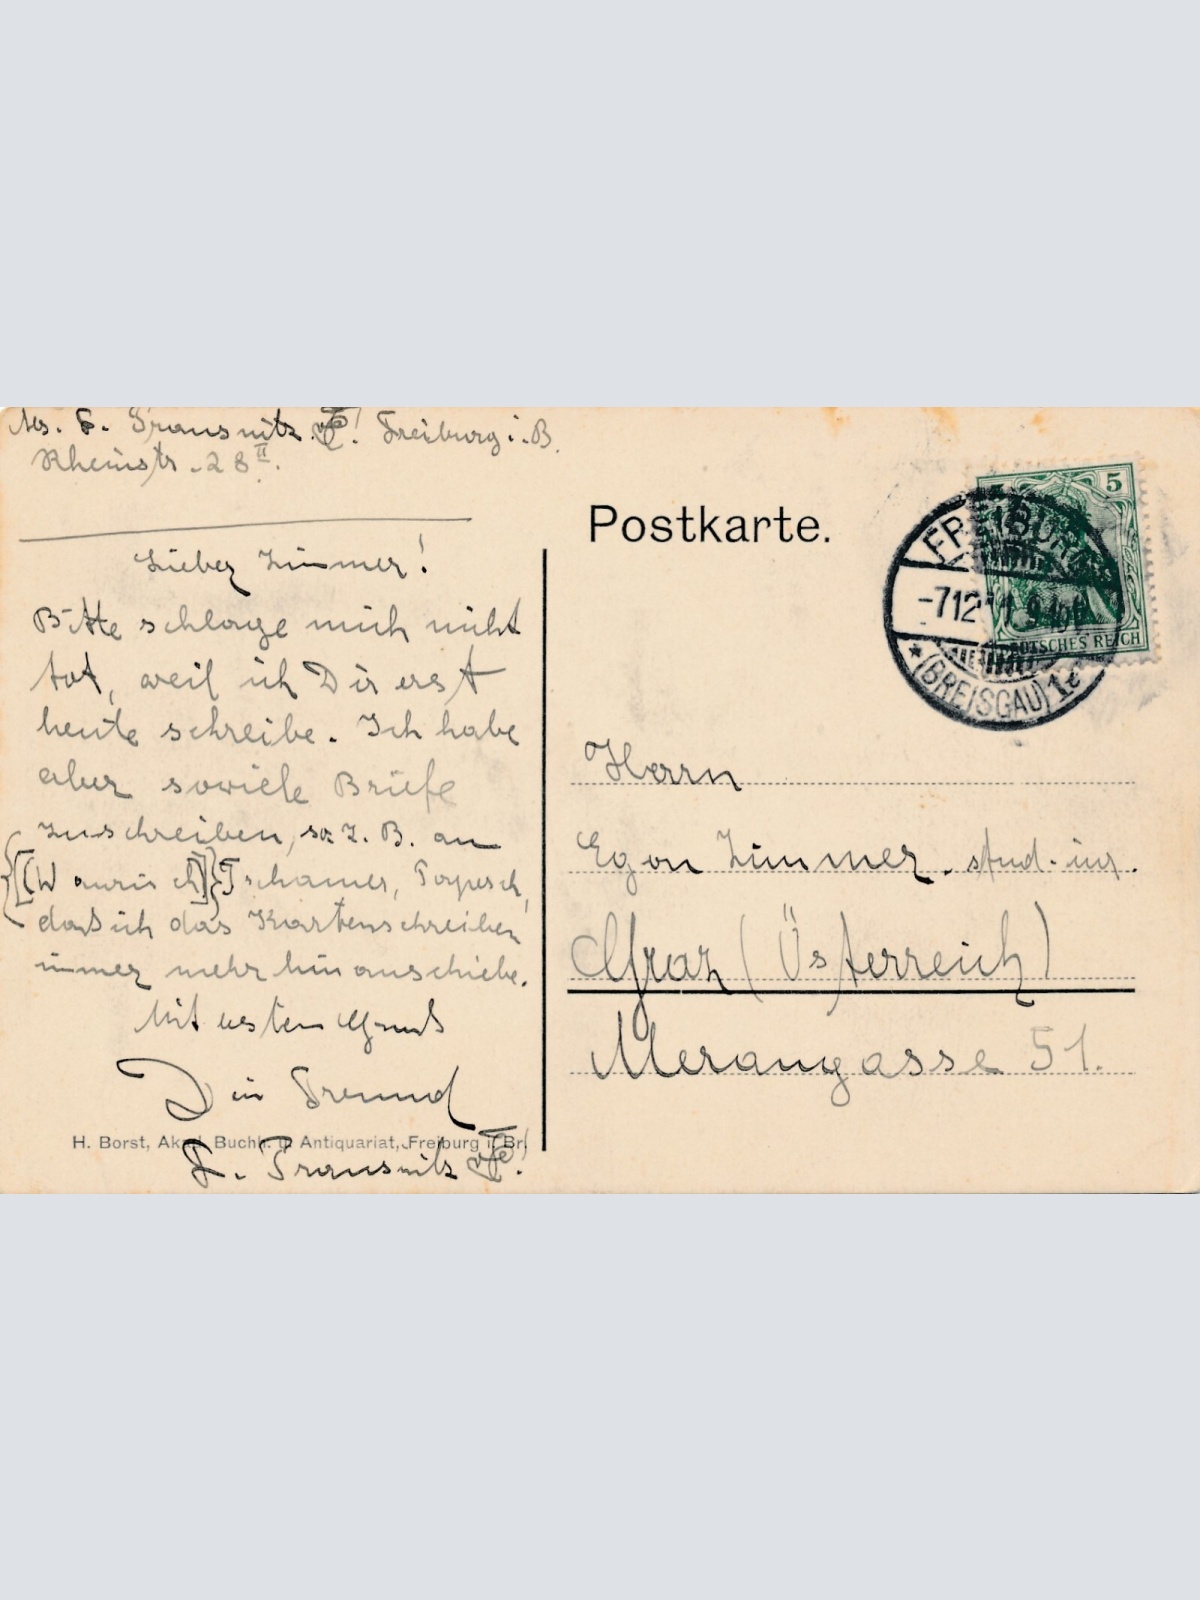 Abs. F. Transnitz Freiburg i. B.
Rheinstr. 28 II.
Lieber Zimmer!
Bitte schlage mich nicht
tot, weil ich Dir erst
heute schreibe. Ich habe
aber soviele Briefe
zu schreiben, so z. B. an
Tschamer,
daß ich das Kartenschreiben
immer mehr hinausschiebe.
Mit besten Gruß
Dein Freund
F. Transnitz
H. Borst, Akad. Buchh. u. Antiquariat, Freiburg i. Br.
Postkarte.
5
DEUTSCHES REICH
FREIBURG
-7.12.11. 9-10V
* (BREISGAU) 1e
Herrn
Egon Zimmer. stud. ing.
Graz (Österreich)
Merangasse 51.